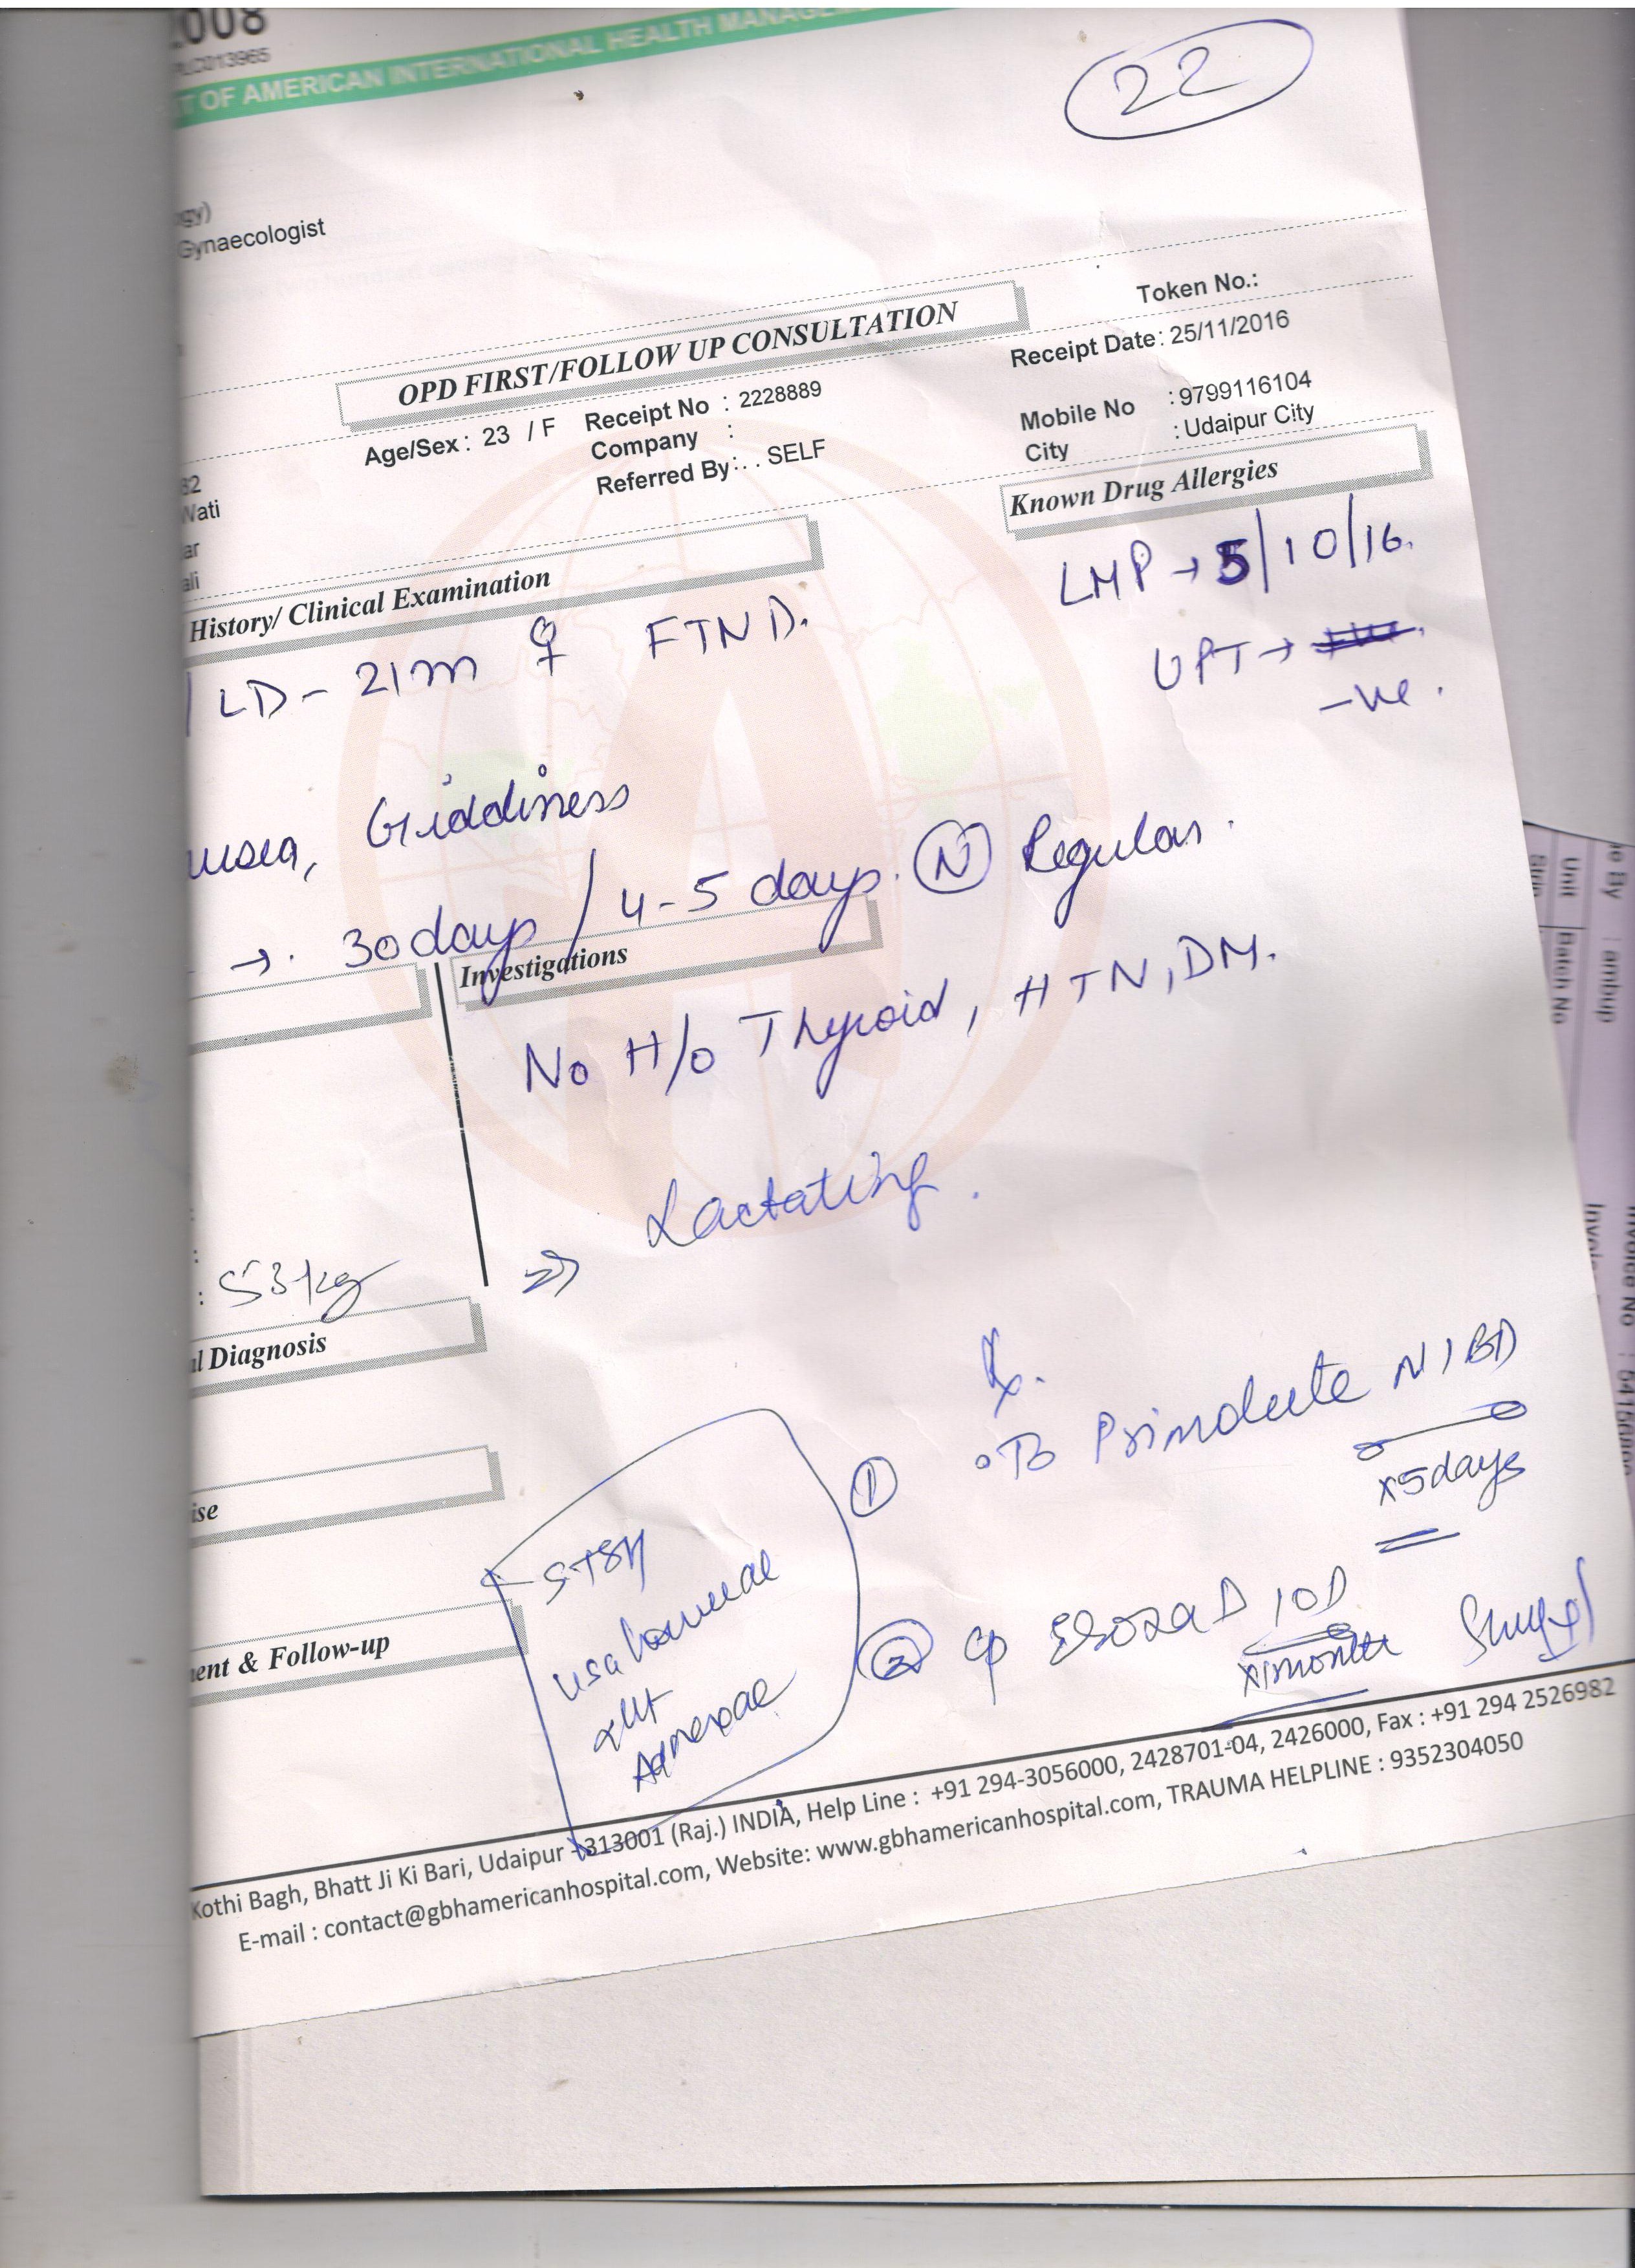 2008
PLC013965
T OF AMERICAN INTERNATIONAL HEALTH MANAGEM
22
ogy)
Gynaecologist
OPD FIRST/FOLLOW UP CONSULTATION
Token No.:
Age/Sex : 23 / F
Receipt No : 2228889
Receipt Date : 25/11/2016
Company :
Mobile No : 9799116104
Referred By : . . SELF
City : Udaipur City
82
Wati
ar
ali
Known Drug Allergies
History/ Clinical Examination
LMP → 5/10/16.
LD - 21m ♀ FTND.
UPT →
-ve.
usea, Giddiness
→. 30 days / 4-5 days. N Regular.
Investigations
No H/o Thyroid, HTN, DM.
⇒ Lactating.
: 53 kg
al Diagnosis
Rx.
① Primolute N 1 BD
x 5 days
ise
② Cp D 1 OD
x 1 month
Adnexae
ent & Follow-up
Kothi Bagh, Bhatt Ji Ki Bari, Udaipur - 313001 (Raj.) INDIA, Help Line : +91 294-3056000, 2428701-04, 2426000, Fax : +91 294 2526982
E-mail : contact@gbhamericanhospital.com, Website: www.gbhamericanhospital.com, TRAUMA HELPLINE : 9352304050
e By : amhup
Unit
Batch No
Invoice No : 5416
Invoi